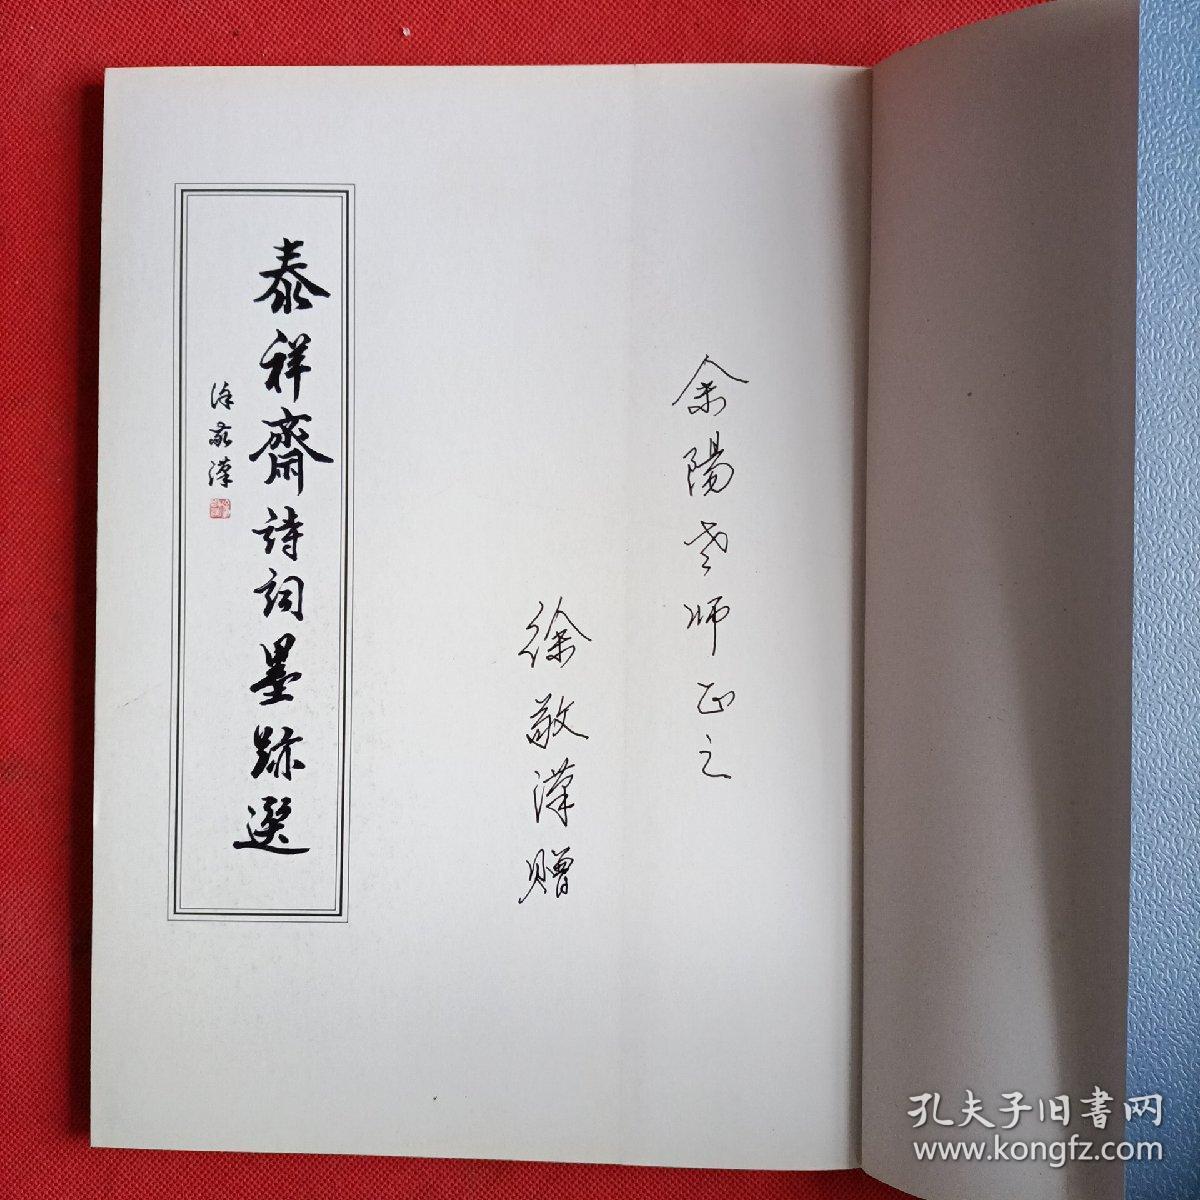 余陽老师正之
徐敬漢赠
泰祥齋詩詞墨跡選
徐敬漢
孔夫子旧书网
www.kongfz.com